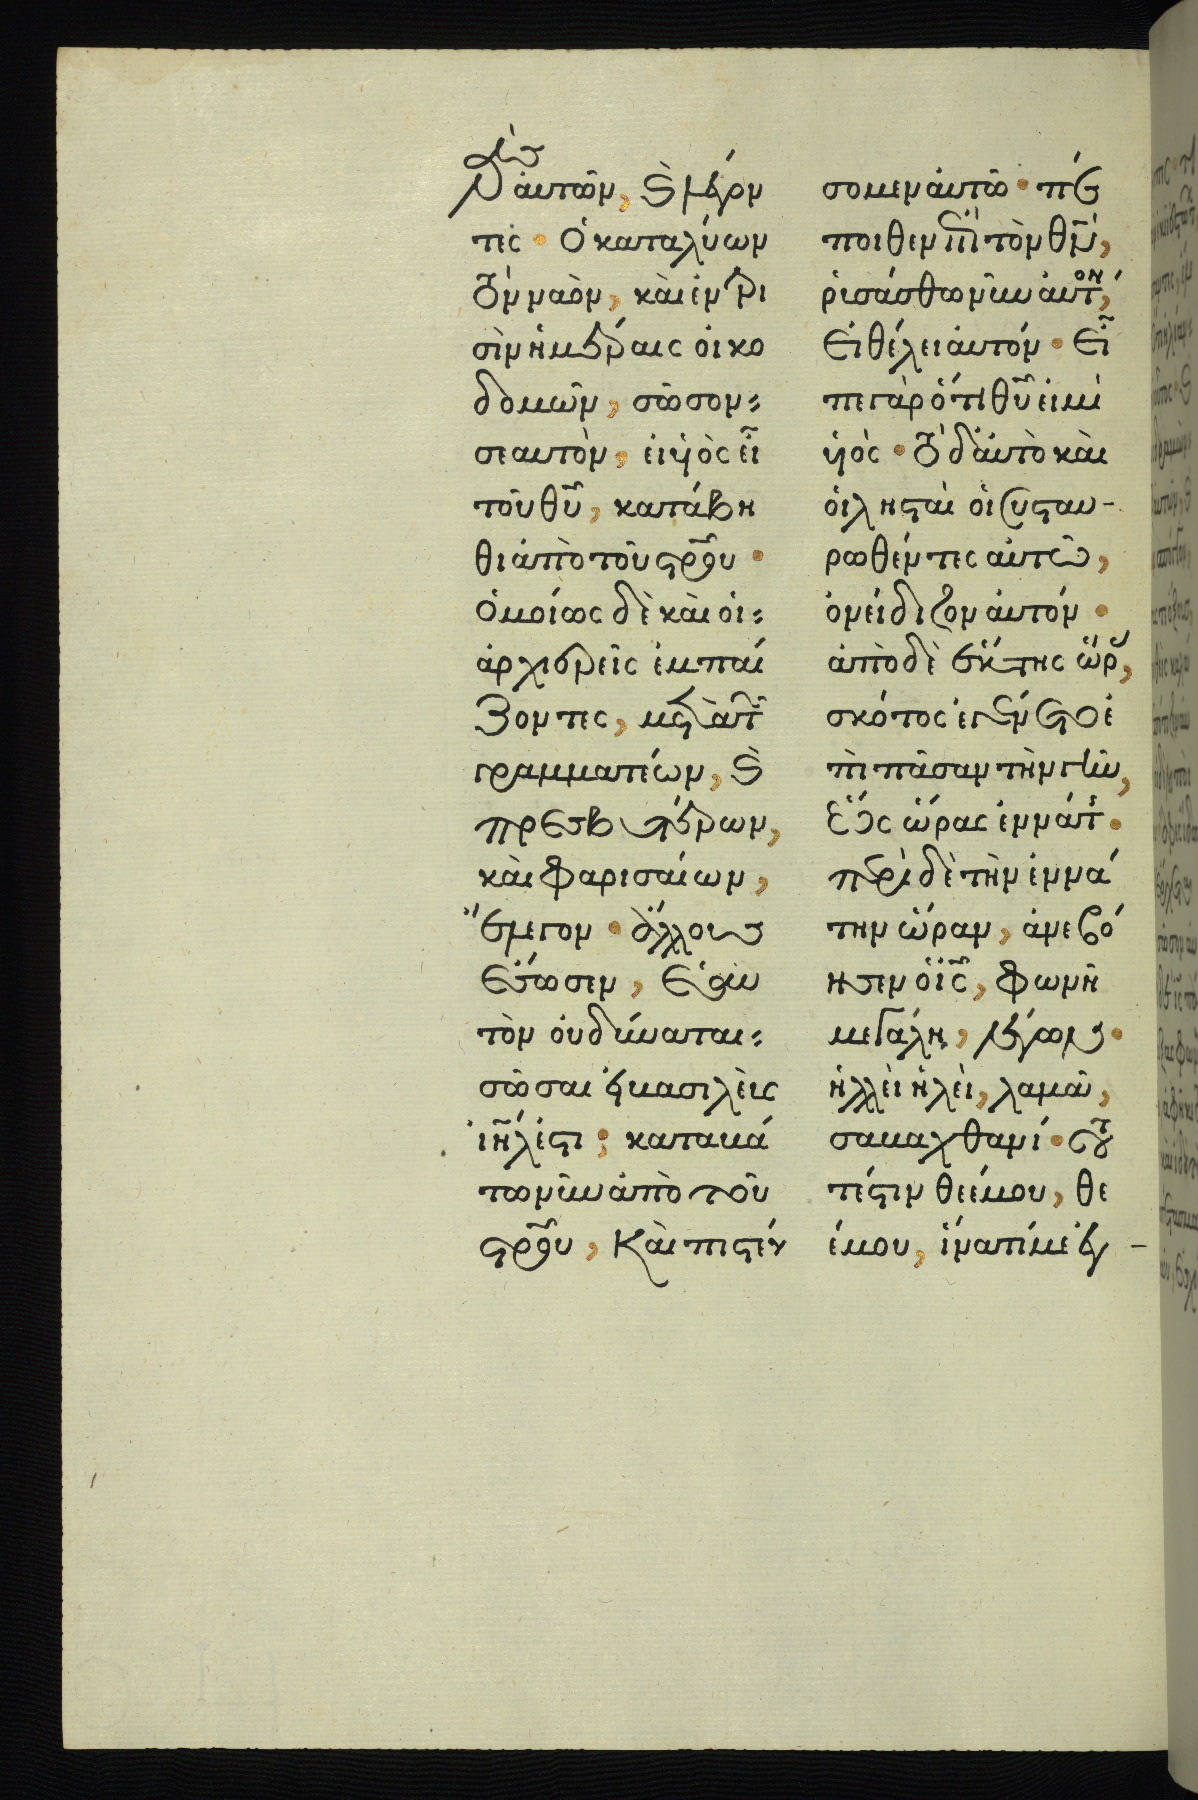 λὰς αὐτῶν, καὶ λέγον
τες· Ὁ καταλύων
τὸν ναὸν, καὶ ἐν τρι
σὶν ἡμέραις οἰκο
δομῶν, σῶσον
σεαυτὸν, εἰ υἱὸς εἶ
τοῦ θῦ, κατάβη
θι ἀπὸ τοῦ στρου·
Ὁμοίως δὲ καὶ οἱ
ἀρχιερεῖς ἐμπαί
ζοντες, μετὰ τῶν
γραμματέων, καὶ
πρεσβυτέρων,
καὶ φαρισαίων,
ἔλεγον· ἄλλους
ἔσωσεν, ἑαυ
τὸν οὐ δύναται
σῶσαι· εἰ βασιλεὺς
ἰηλ ἐστι, καταβά
τω νῦν ἀπὸ τοῦ
στρου, καὶ πιστεύ
σομεν αὐτῶ· πέ
ποιθεν ἐπὶ τὸν θν,
ῥυσάσθω νῦν αὐτον,
εἰ θέλει αὐτόν· εἶ
πε γὰρ ὅτι θῦ εἰμὶ
υἱός· τὸ δ᾽ αὐτὸ καὶ
οἱ λησταὶ οἱ συσταυ-
ρωθέντες αὐτῶ,
ὀνείδιζον αὐτόν·
ἀπὸ δὲ ἕκτης ὥρας,
σκότος ἐγένετο ἐ
πὶ πᾶσαν τὴν γῆν,
ἕως ὥρας ἐννάτης·
περὶ δὲ τὴν ἐννά
την ὥραν, ἀνεβό
ησεν ὁ ις, φωνῆ
μεγάλη, λέγων·
ἠλλὶ ἠλὶ, λαμᾶ,
σαβαχθανί· τοῦ
τέστιν θεέ μου, θε
έ μου, ἵνα τί με ἐγ-